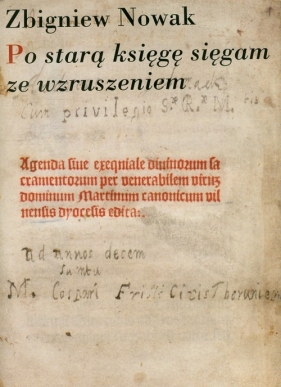 Zbigniew Nowak
Po starą księgę sięgam
ze wzruszeniem
Cum privilegio S. R. M.
Agenda siue exequiale diuinorum sa
cramentorum per venerabilem virum
dominum Martinum canonicum vil
nensis dyocesis edita:.
ad annos decem
M. Caspari Frisii Civis